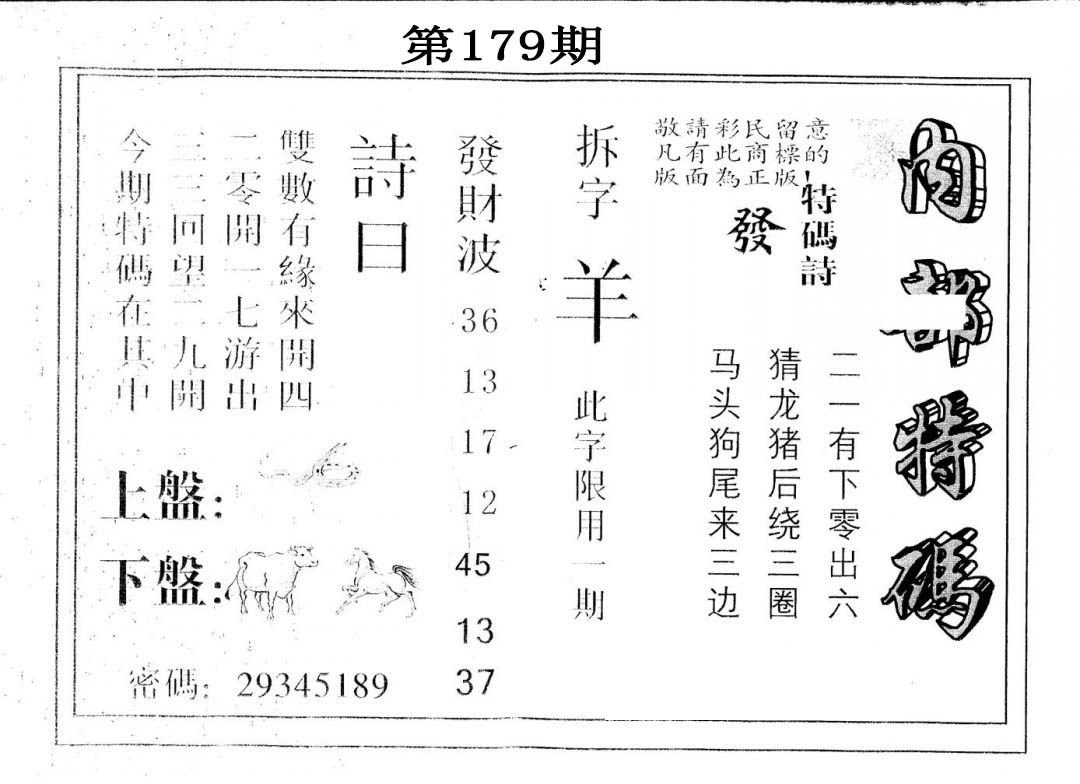 第179期
內部特碼
意的
留標版
民商正
彩此為
請有面
敬凡版
特碼詩
發
二一有下零出六
猜龙猪后绕三圈
马头狗尾来三边
拆字
羊
此字限用一期
發財波
36
13
17
12
45
13
37
詩曰
雙數有緣來開四
二零開一七游出
三三回望二九開
今期特碼在其中
上盤:
下盤:
密碼: 29345189